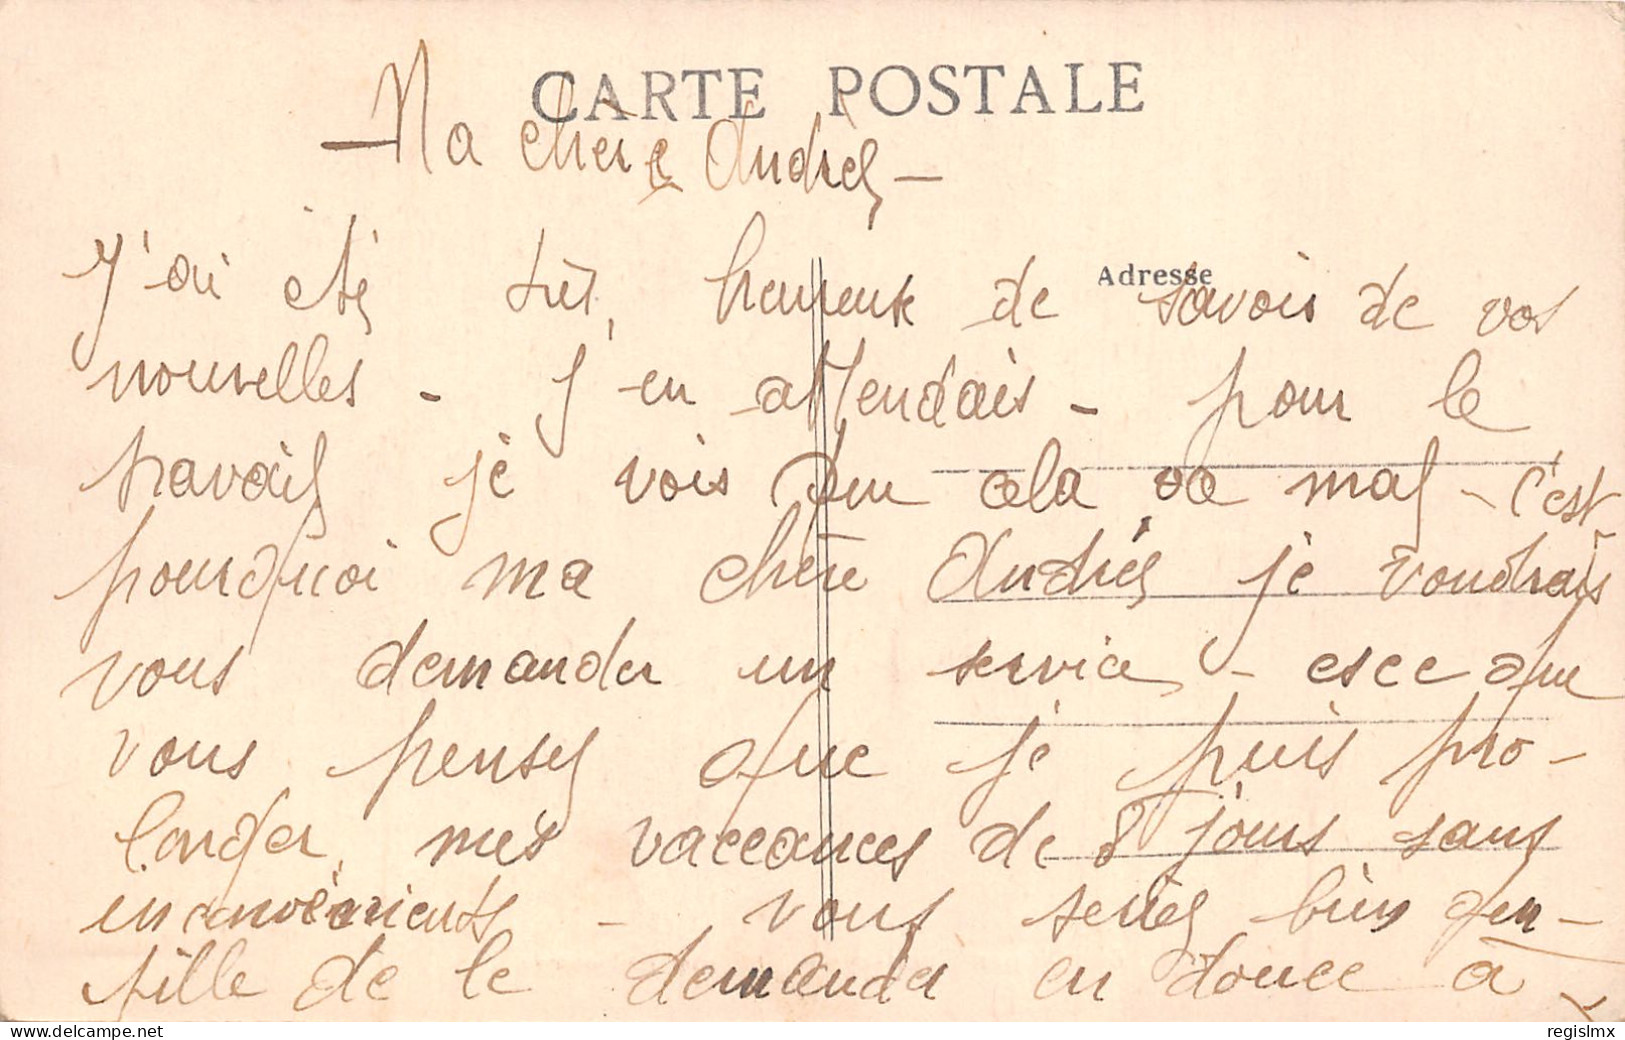 CARTE POSTALE
Ma chère Andrée —
Adresse
J'ai été très heureuse de savoir de vos
nouvelles - J'en attendais - pour le
travail je vois que cela va mal - C'est
pourquoi ma chère Andrée je voudrais
vous demander un service - esce que
vous pensez que je puis pro-
longer mes vaccances de 8 jours sans
inconvénients - vous seriez bien gen-
tille de le demander en douce à
regislmx